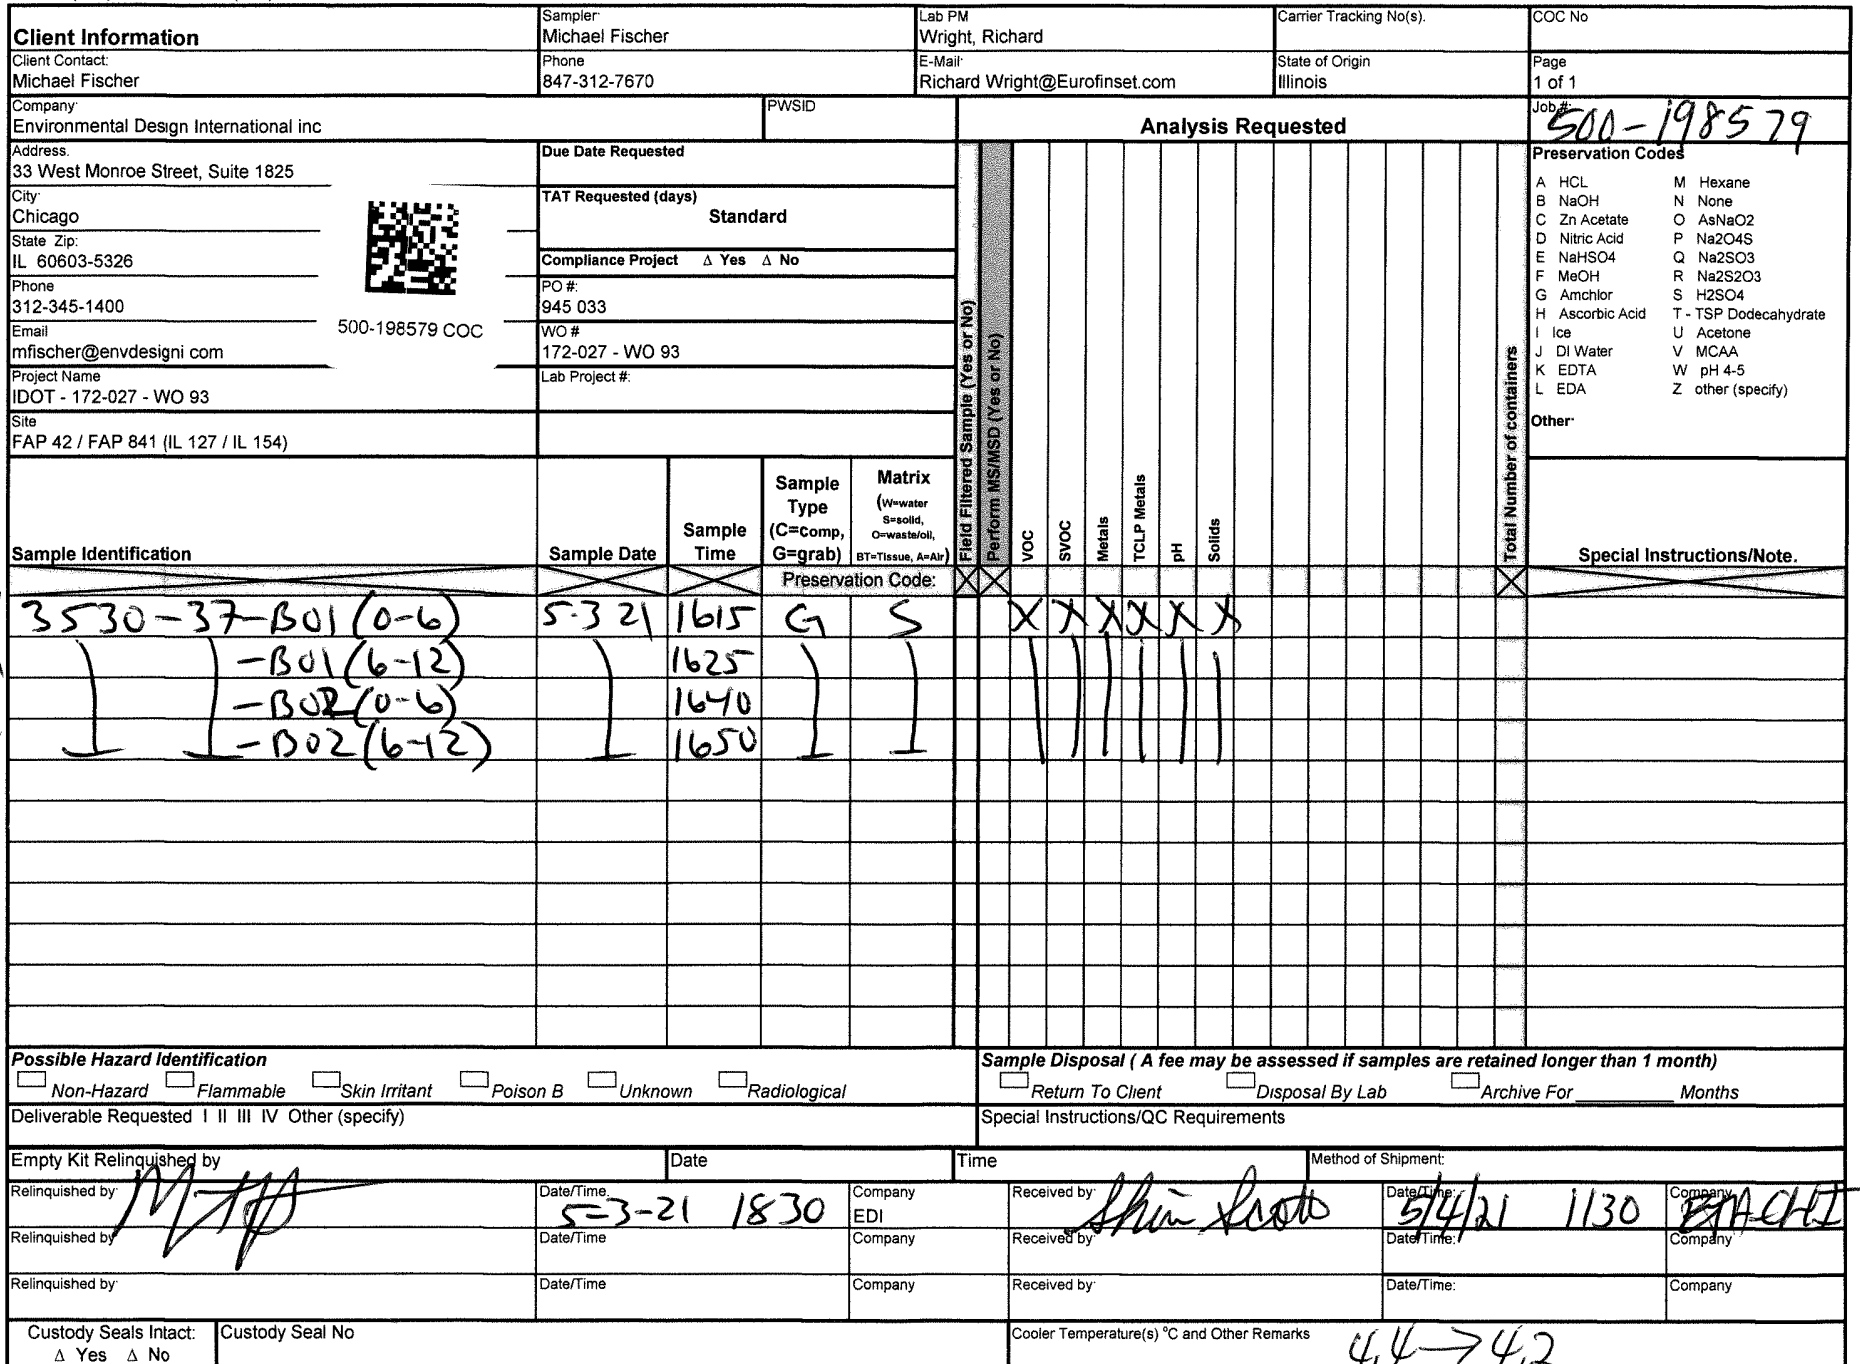 Client Information
Sampler
Michael Fischer
Lab PM
Wright, Richard
Carrier Tracking No(s).
COC No
Client Contact:
Michael Fischer
Phone
847-312-7670
E-Mail
Richard Wright@Eurofinset.com
State of Origin
Illinois
Page
1 of 1
Company
Environmental Design International inc
PWSID
Analysis Requested
Job #:
500-198579
Address.
33 West Monroe Street, Suite 1825
City
Chicago
State Zip:
IL 60603-5326
Phone
312-345-1400
Email
mfischer@envdesigni com
500-198579 COC
Project Name
IDOT - 172-027 - WO 93
Site
FAP 42 / FAP 841 (IL 127 / IL 154)
Due Date Requested
TAT Requested (days)
Standard
Compliance Project Δ Yes Δ No
PO #:
945 033
WO #
172-027 - WO 93
Lab Project #:
Preservation Codes
A HCL M Hexane
B NaOH N None
C Zn Acetate O AsNaO2
D Nitric Acid P Na2O4S
E NaHSO4 Q Na2SO3
F MeOH R Na2S2O3
G Amchlor S H2SO4
H Ascorbic Acid T - TSP Dodecahydrate
I Ice U Acetone
J DI Water V MCAA
K EDTA W pH 4-5
L EDA Z other (specify)
Other
Sample Identification
Sample Date
Sample Time
Sample Type (C=comp, G=grab)
Matrix (W=water S=solid, O=waste/oil, BT=Tissue, A=Air)
Field Filtered Sample (Yes or No)
Perform MS/MSD (Yes or No)
VOC
SVOC
Metals
TCLP Metals
pH
Solids
Total Number of containers
Special Instructions/Note.
Preservation Code:
3530-37-B01 (0-6) 5-3 21 1615 G S X X X X X X
-B01 (6-12) 1625
-B02 (0-6) 1640
-B02 (6-12) 1650
Possible Hazard Identification
Non-Hazard Flammable Skin Irritant Poison B Unknown Radiological
Sample Disposal ( A fee may be assessed if samples are retained longer than 1 month)
Return To Client Disposal By Lab Archive For Months
Deliverable Requested I II III IV Other (specify)
Special Instructions/QC Requirements
Empty Kit Relinquished by
Date
Time
Method of Shipment:
Relinquished by
Date/Time.
5-3-21 1830
Company
EDI
Received by
Date/Time:
5/4/21 1130
Company
Relinquished by
Date/Time
Company
Received by
Date/Time:
Company
Relinquished by
Date/Time
Company
Received by
Date/Time:
Company
Custody Seals Intact:
Δ Yes Δ No
Custody Seal No
Cooler Temperature(s) °C and Other Remarks
4.4 → 4.2